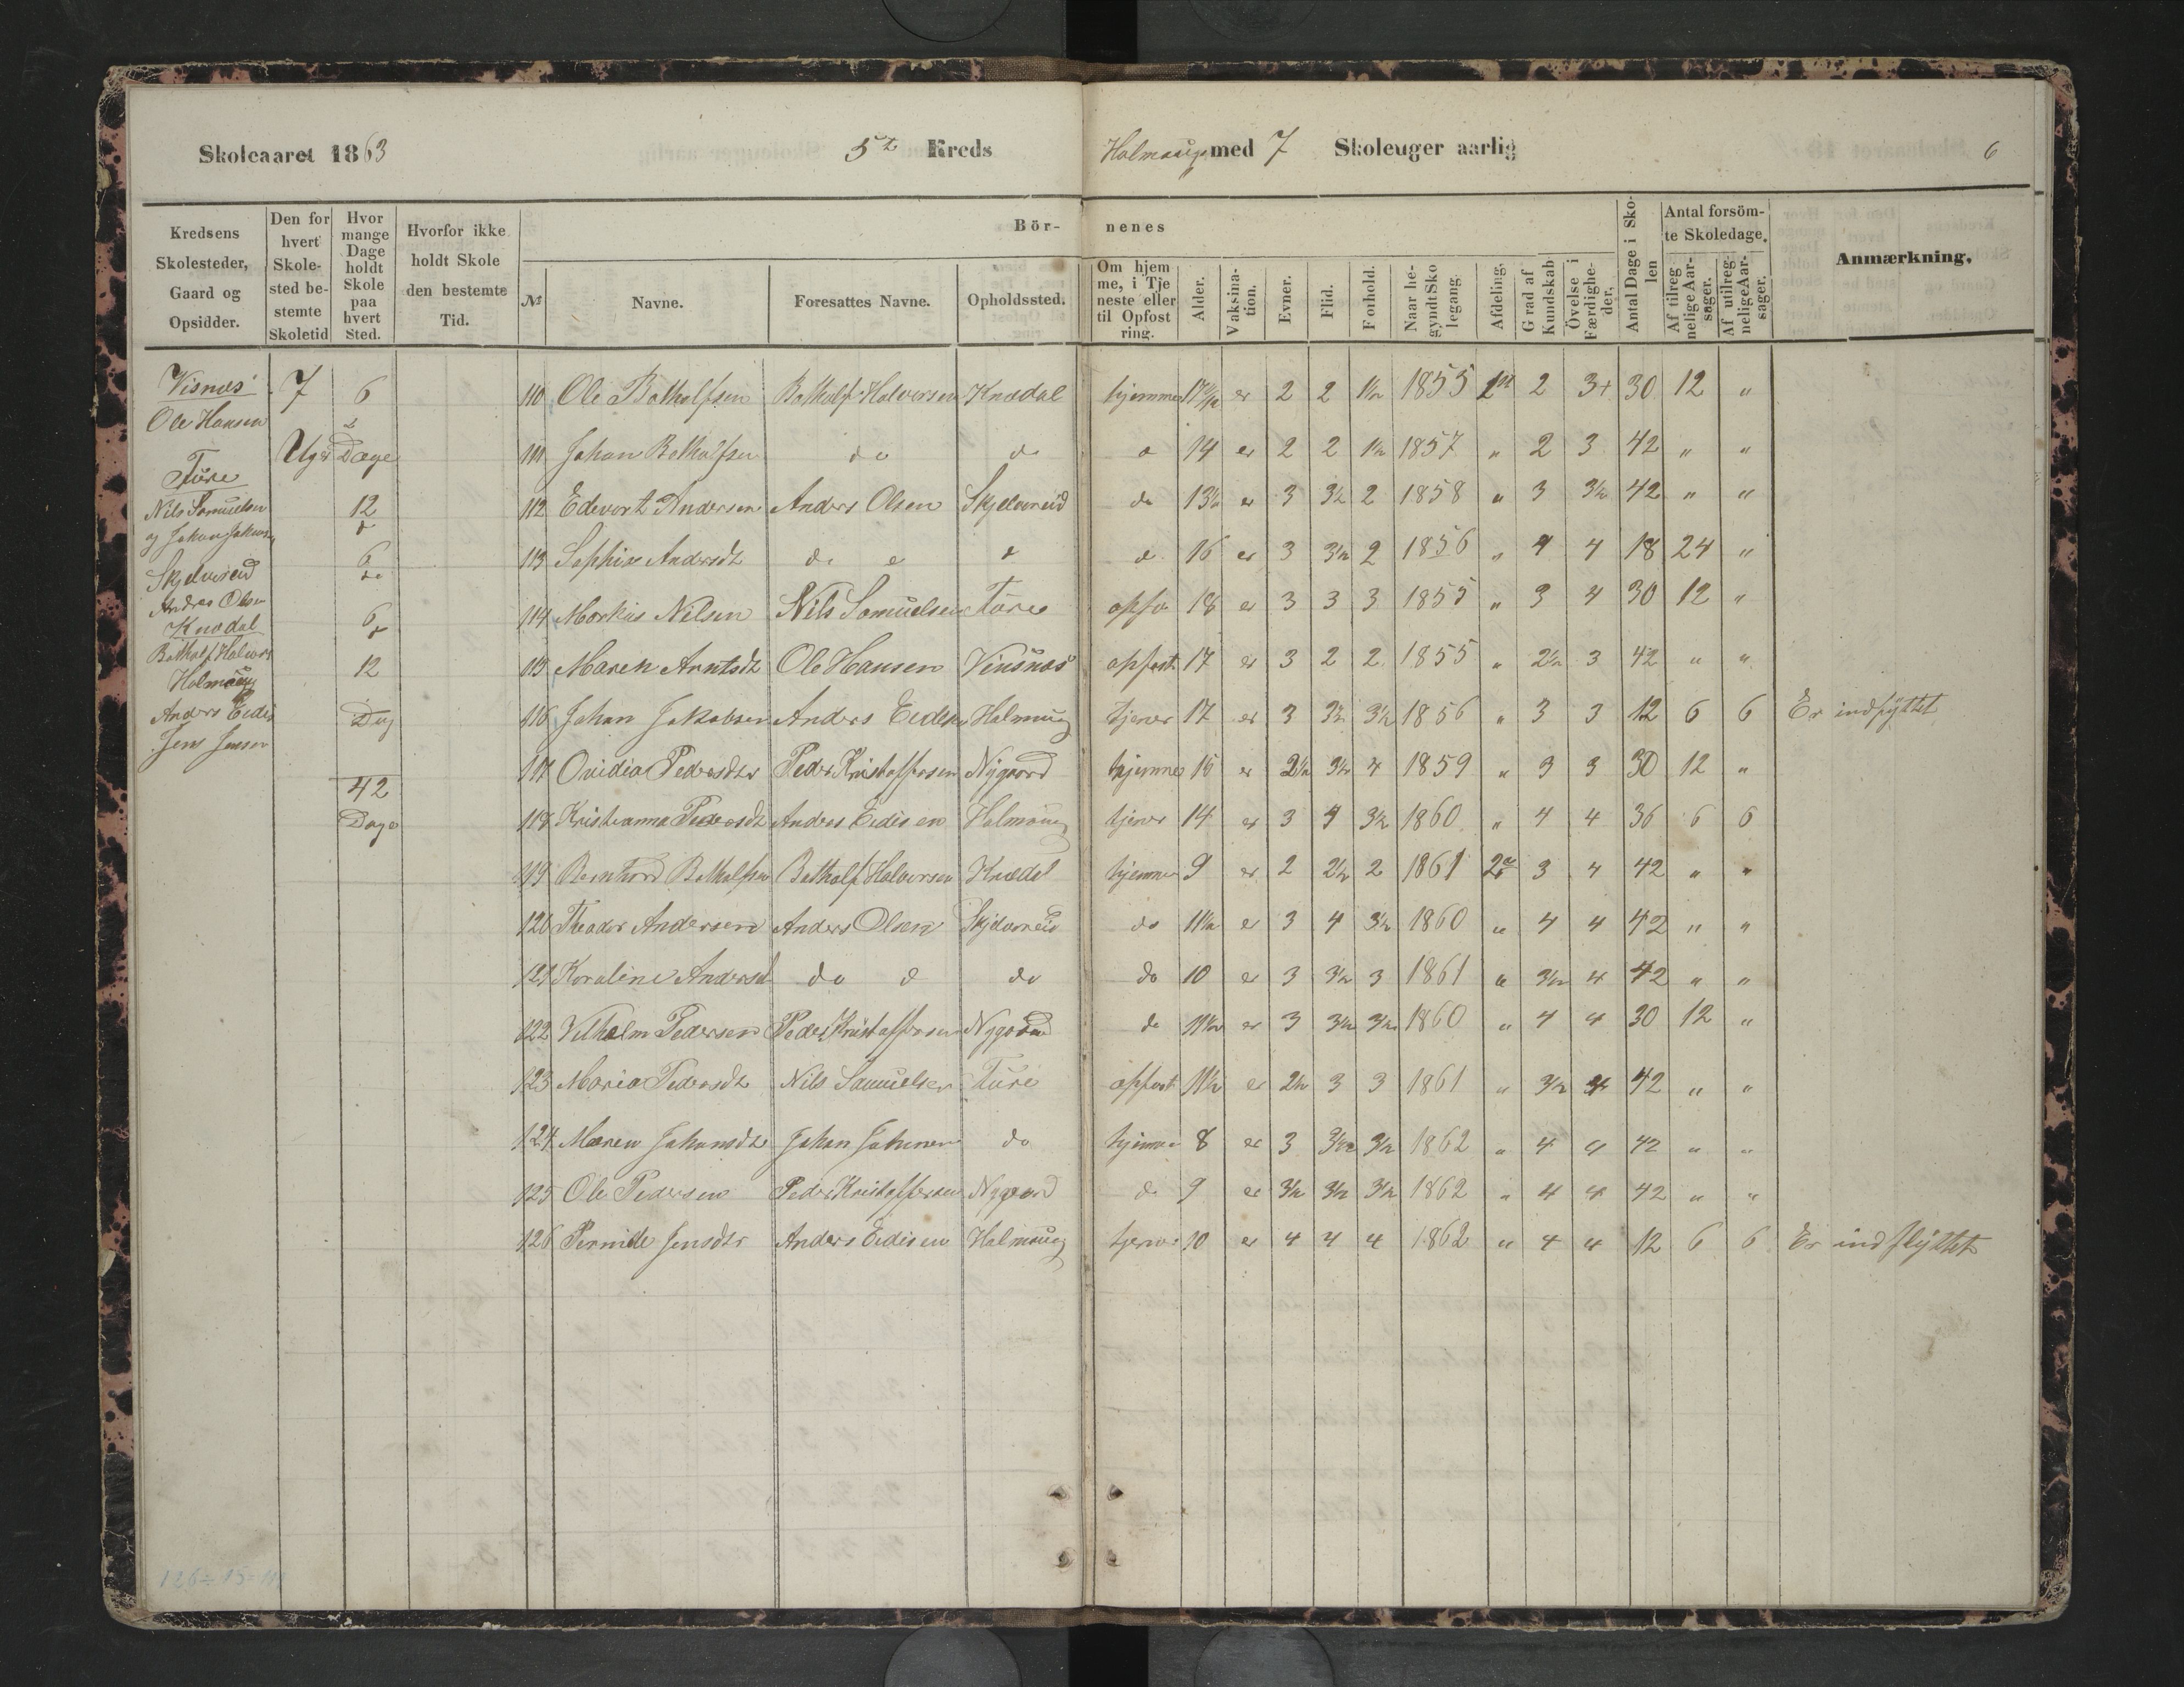 Skoleaaret 1863 5te Kreds Holmaug med 7 Skoleuger aarlig 6
Kredsens Skolesteder, Gaard og Opsidder. Den for hvert Skolested bestemte Skoletid Hvor mange Dage holdt Skole paa hvert Sted. Hvorfor ikke holdt Skole den bestemte Tid. Bör- nenes Antal Dage i Skolen Antal forsömte Skoledage. Anmærkning.
№ Navne. Foresattes Navne. Opholdssted. Om hjemme, i Tjeneste eller til Opfostring. Alder. Vaksination. Evner. Flid. Forhold. Naar begyndt Skolegang. Afdeling. Grad af Kundskab Övelse i Færdigheder. Af tilregnelige Aarsager. Af utilregnelige Aarsager.
Visnæs 7 6
Ole Hansen
Uger Dage
Ture
Nils Samuelsen 12
og Johan
Skjelvareid 6
Andres Olsen
Knædal 6
Bathalf Halvors
Holmaug 12
Anders Eidis Dag
Jens Jensen
42
Dage
110 Ole Bathalfsen Bathalf Halversen Knædal hjemme er 2 2 1½ 1855 2 3+ 30 12 "
111 Johan Bathalfsen do do 14 er 2 2 1½ 1857 " 2 3 42 " "
112 Edevart Andersen Anders Olsen Skjelvareid do 13½ er 3 3½ 2 1858 " 3 3½ 42 " "
113 Sophie Andersdt do d d d 16 er 3 3½ 2 1856 " 4 4 18 24 "
114 Markus Nilsen Nils Samuelsen Ture opfo 18 er 3 3 3 1855 " 3 4 30 12 "
115 Maren Arntsdt Ole Hansen Vinsnæs opfost 17 er 3 2 2 1855 " 2½ 3 42 " "
116 Johan Jakobsen Anders Eedesen Halmaug tjener 17 er 3 3½ 3½ 1856 " 3 3 12 6 6 Er indflyttet
117 Ovidia Pedersdtr Peder Kristoffersen Nygaard hjemme 15 er 2½ 3½ 4 1859 " 3 3 30 12 "
118 Kristianna Pedersdt Anders Eedisen Halmaug tjener 14 er 3 4 3½ 1860 " 4 4 36 6 6
119 Bernhard Bathalfsen Bathalf Halversen Knædal hjemme 9 er 2 2½ 2 1861 2d 3 4 42 " "
120 Theodor Andersen Anders Olsen Skjelvareid do 11½ er 3 4 3½ 1860 " 4 4 42 " "
121 Koraline Andersd do d do do 10 er 3 3½ 3 1861 " 3½ 4 42 " "
122 Vilhelm Pedersen Peder Kristoffersen Nygaard do 11½ er 3 3½ 3½ 1860 " 4 4 30 12 "
123 Maria Pedersdt Nils Samuelsen Ture opfost 11½ er 2½ 3 3 1861 " 3½ 4 42 " "
124 Maren Johansdt Johan do hjemme 8 er 3 3½ 3½ 1862 " 4 4 42 " "
125 Ole Pedersen Peder Kristoffersen Nygaard do 9 er 3½ 3½ 3½ 1862 " 4 4 42 " "
126 Pernille Jensdtr Anders Eidisen Halmaug tjener 10 er 4 4 4 1862 " 4 4 12 6 6 Er indflyttet